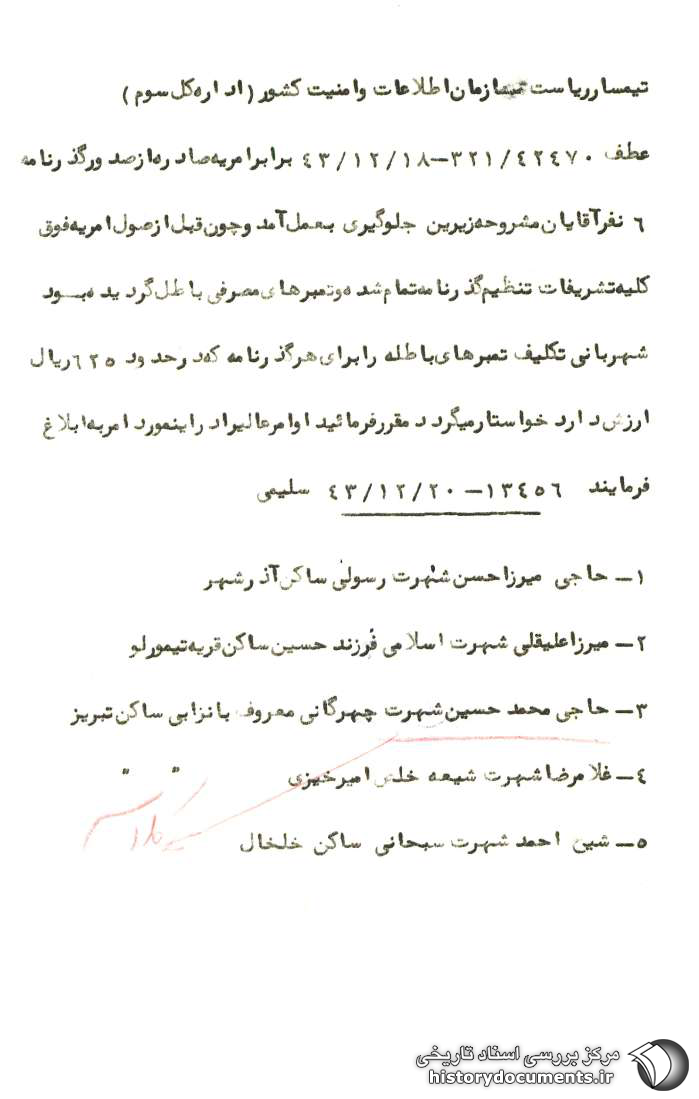 تیمسار ریاست سازمان اطلاعات و امنیت کشور (اداره کل سوم)
عطف ۳۲۱/۴۲۴۷۰-۴۳/۱۲/۱۸ برابر امریه صادره از صدور گذرنامه
۶ نفر آقایان مشروحه زیرین جلوگیری بعمل آمد و چون قبل از صول امریه فوق
کلیه تشریفات تنظیم گذرنامه تمام شده و تمبرهای مصرفی باطل گردیده بود
شهربانی تکلیف تمبرهای باطله را برای هر گذرنامه که در حدود ۶۲۵ ریال
ارزش دارد خواستار میگردد مقرر فرمائید اوامر عالیرا در اینمورد امر به ابلاغ
فرمایند ۱۳۴۵۶-۴۳/۱۲/۲۰ سلیمی
۱- حاجی میرزا حسن شهرت رسولی ساکن آذرشهر
۲- میرزا علیقلی شهرت اسلامی فرزند حسین ساکن قریه تیمورلو
۳- حاجی محمد حسین شهرت چهرگانی معروف بانزابی ساکن تبریز
۴- غلامرضا شهرت شیعه خلص امیرخیزی " "
۵- شیخ احمد شهرت سبحانی ساکن خلخال
مرکز بررسی اسناد تاریخی
historydocuments.ir